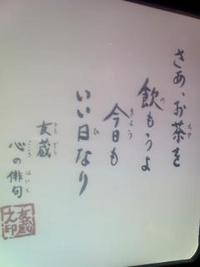 さあ、お茶を
飲もうよ
今日も
いい日なり
友蔵
心の俳句